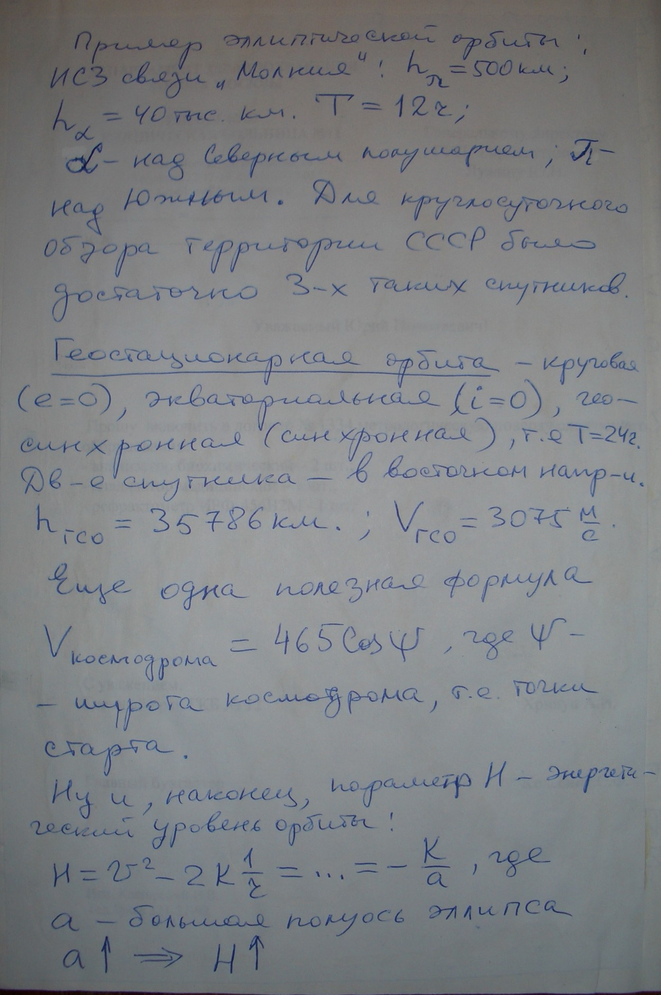 Пример эллиптической орбиты:
ИСЗ связи „Молния“: hπ = 500 км;
hα = 40 тыс. км. T = 12 ч;
α - над Северным полушарием; π -
над Южным. Для круглосуточного
обзора территории СССР было
достаточно 3-х таких спутников.
Геостационарная орбита - круговая
(e=0), экваториальная (i=0), гео-
синхронная (синхронная), т.е T=24ч.
Дв-е спутника - в восточном напр-и.
hГСО = 35786 км. ; VГСО = 3075 м/с.
Еще одна полезная формула
Vкосмодрома = 465 Cos ψ, где ψ -
- широта космодрома, т.е. точки
старта.
Ну и, наконец, параметр H - энергети-
ческий уровень орбиты:
H = v² - 2K 1/r = ... = - K/a, где
a - большая полуось эллипса
a↑ ⇒ H↑